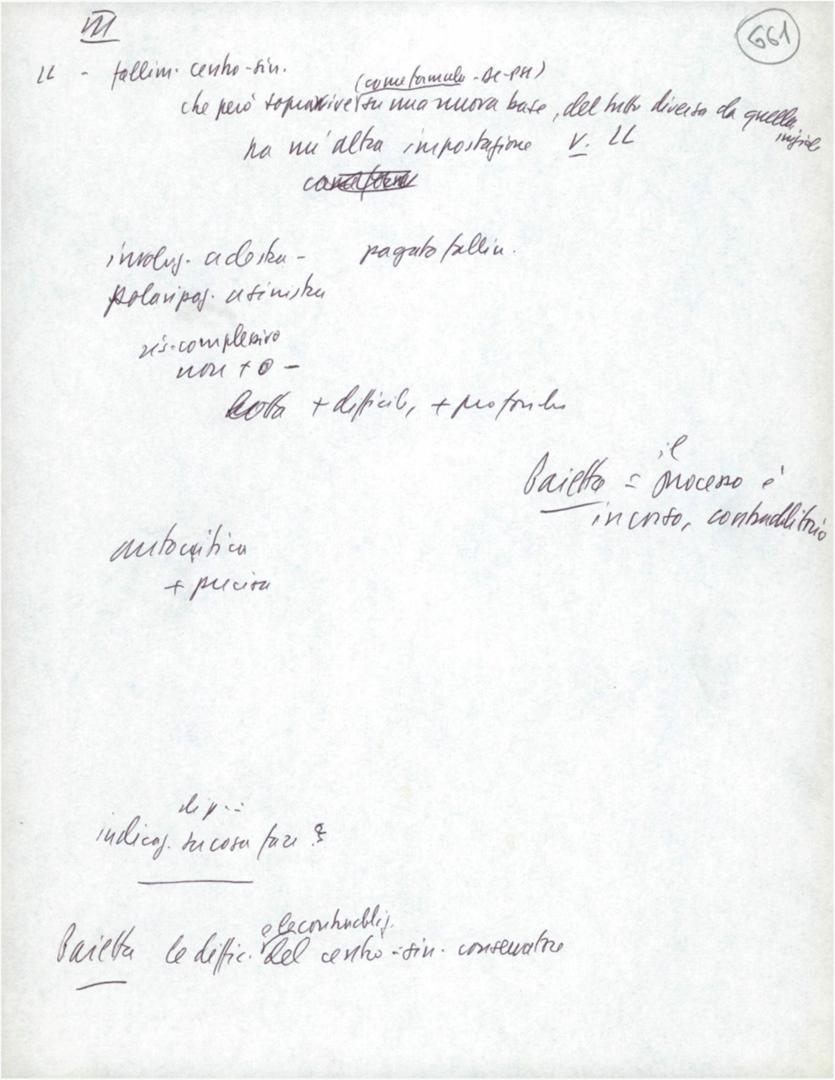 III
661
LL - fallim. centro-sin.
(come formula - DC-PSI)
che però sopravvive su una nuova base, del tutto diversa da quella
iniziale
ha un'altra impostazione v. LL
involuz. a destra - pagato fallim.
polarizzaz. a sinistra
ris. complessivo
non + o -
lotta + difficile, + profonda
il
Paietta = processo è
in corso, contraddittorio
autocritica
+ precisa
di più
indicaz. su cosa fare ?
e le contraddiz.
Paietta le diffic. del centro-sin. conservatore